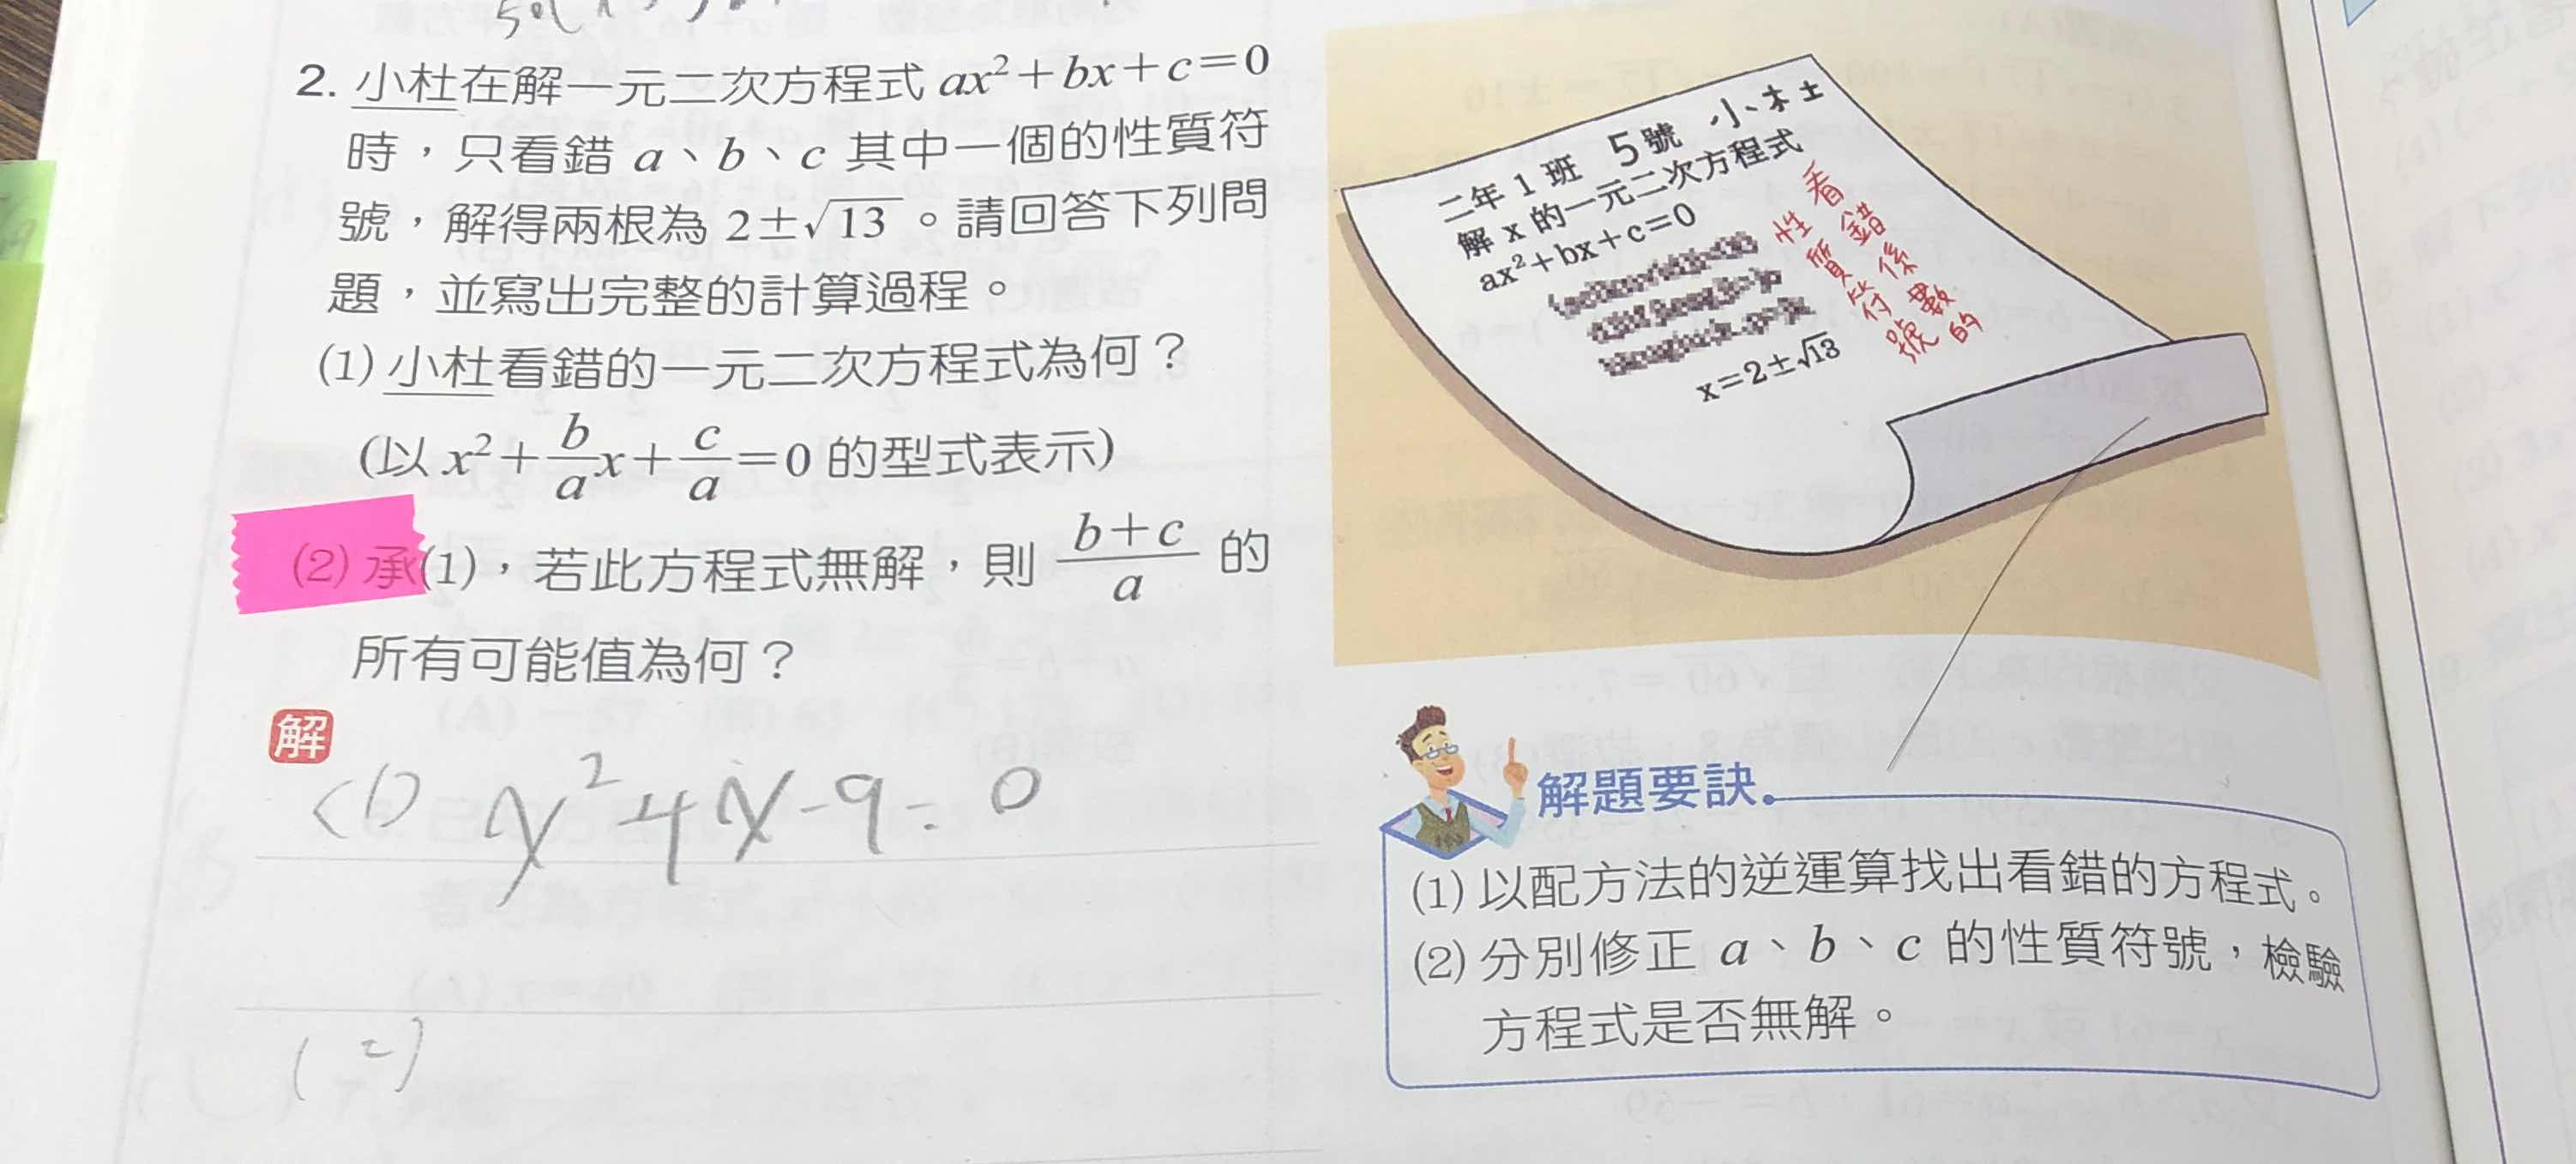 2. 小杜在解一元二次方程式 ax²+bx+c=0
時，只看錯 a、b、c 其中一個的性質符
號，解得兩根為 2±√13。請回答下列問
題，並寫出完整的計算過程。
(1) 小杜看錯的一元二次方程式為何？
(以 x²+b/a x+c/a=0 的型式表示)
(2) 承(1)，若此方程式無解，則 b+c/a 的
所有可能值為何？
解
(1) x²-4x-9=0
(2)
二年 1 班 5號 小杜
解 x 的一元二次方程式
ax²+bx+c=0
x=2±√13
看錯係數的
性質符號
解題要訣
(1) 以配方法的逆運算找出看錯的方程式。
(2) 分別修正 a、b、c 的性質符號，檢驗
方程式是否無解。